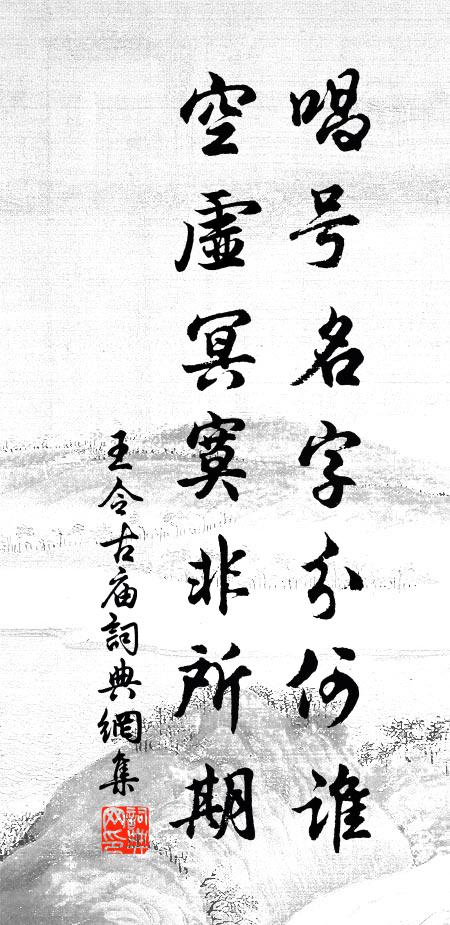 唱号名字分何谁
空虚冥寞非所期
王令古庙詞典網集